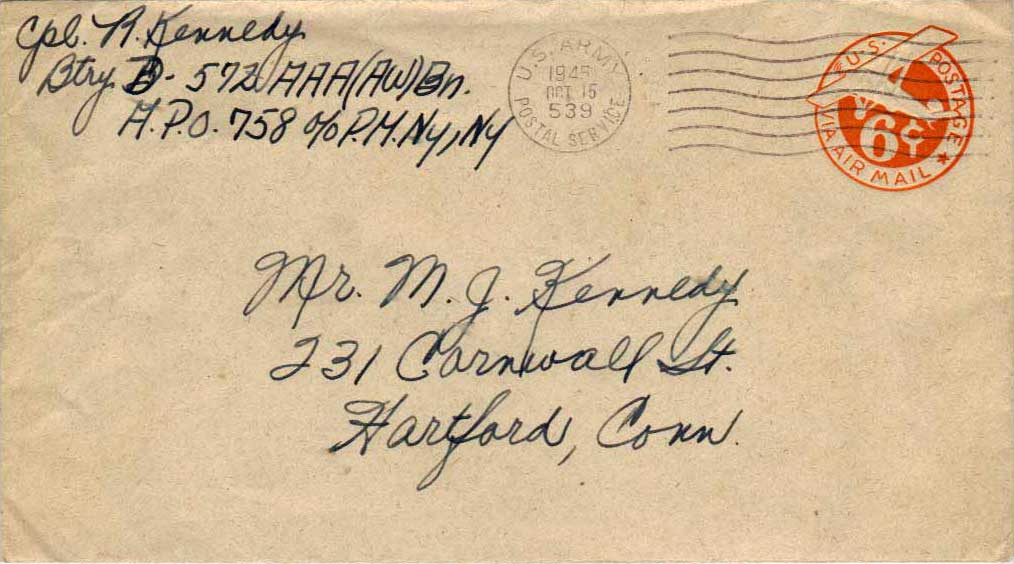 Cpl. R. Kennedy
Btry D - 572 AAA (AW) Bn.
A.P.O. 758 c/o P.M. Ny, Ny
U.S. ARMY
1945
OCT 15
539
POSTAL SERVICE
U.S. POSTAGE
6¢
VIA AIR MAIL
Mr. M. J. Kennedy
231 Cornwall St.
Hartford, Conn.